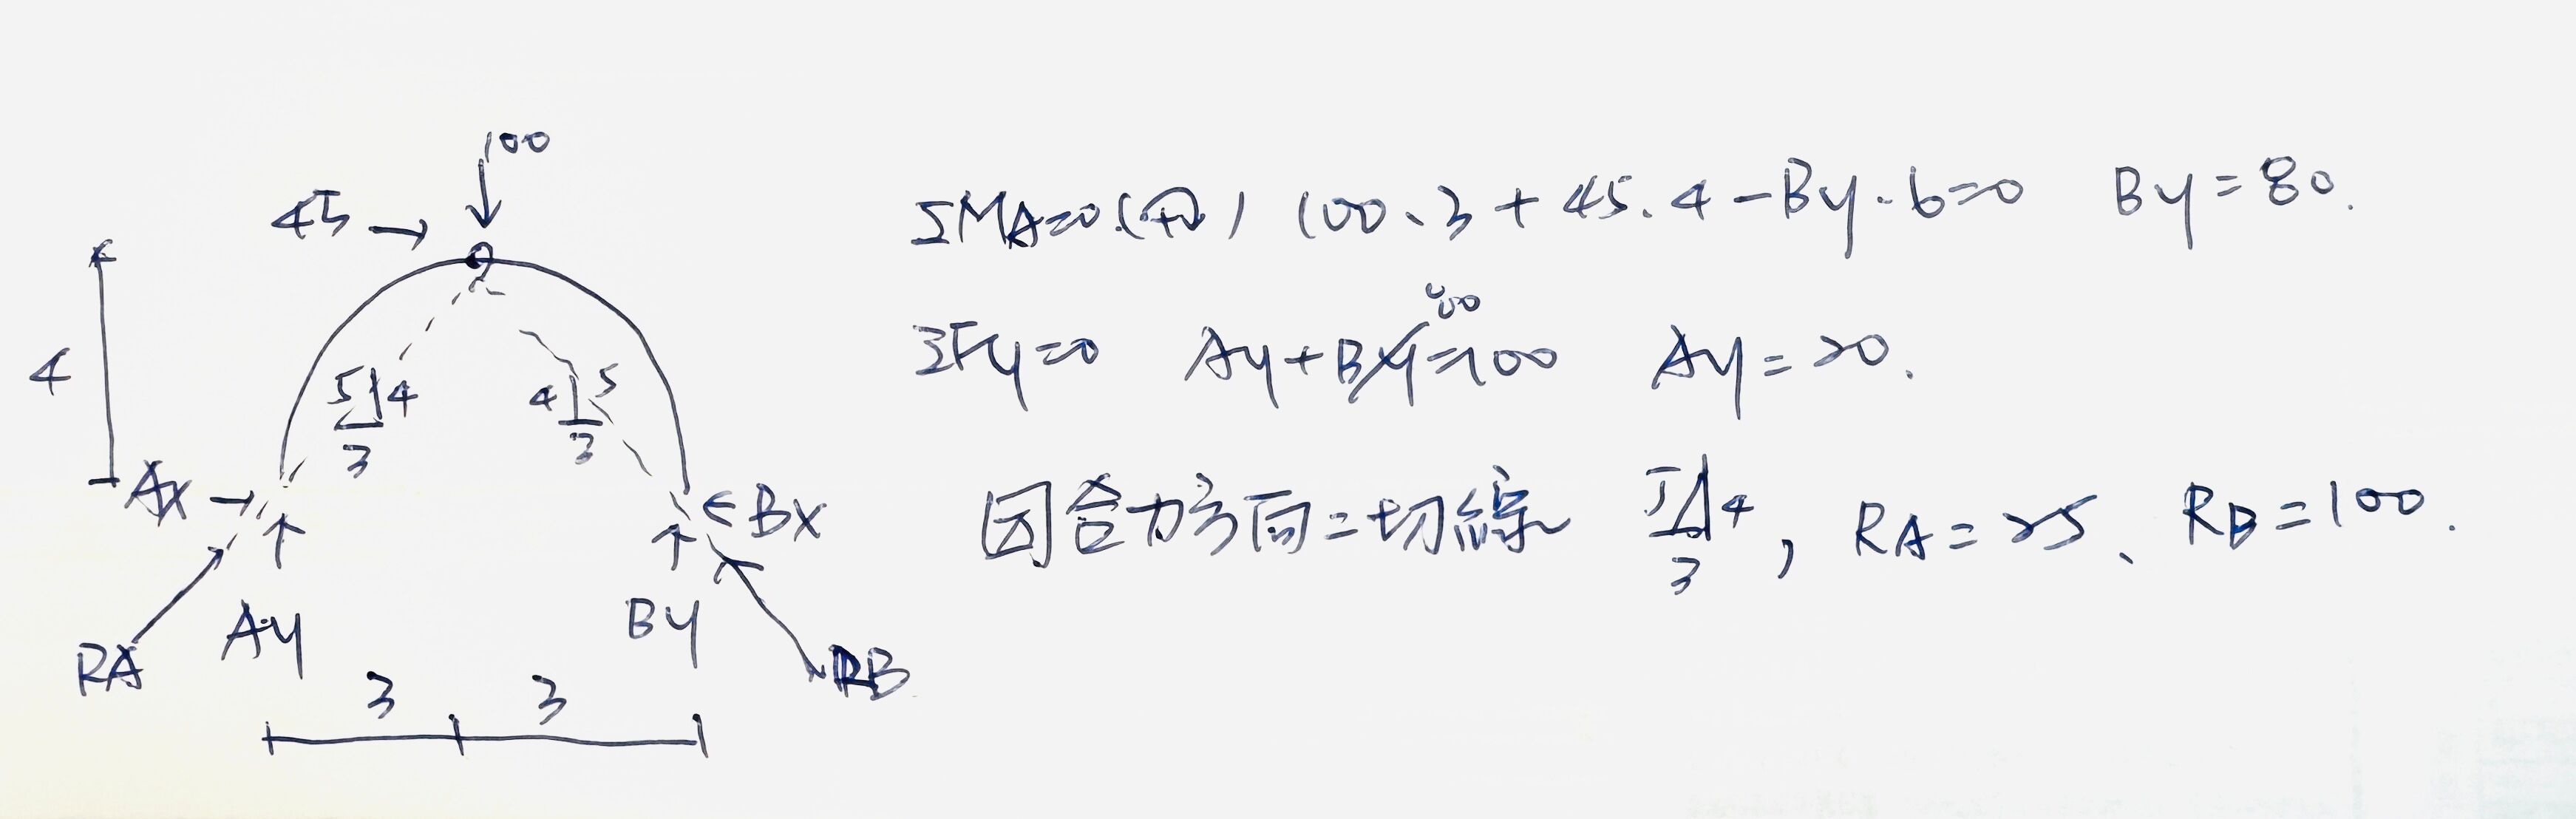 100
45 →
4
5 4
3
4 5
3
Ax →
← Bx
Ay
By
RA
RB
3 3
ΣMA=0.(+↷) 100、3 + 45.4 - By.6=0 By=80.
ΣFy=0 Ay+By=100 Ay=20.
80
因合力方向=切線 5 4 3, RA=25、RB=100.